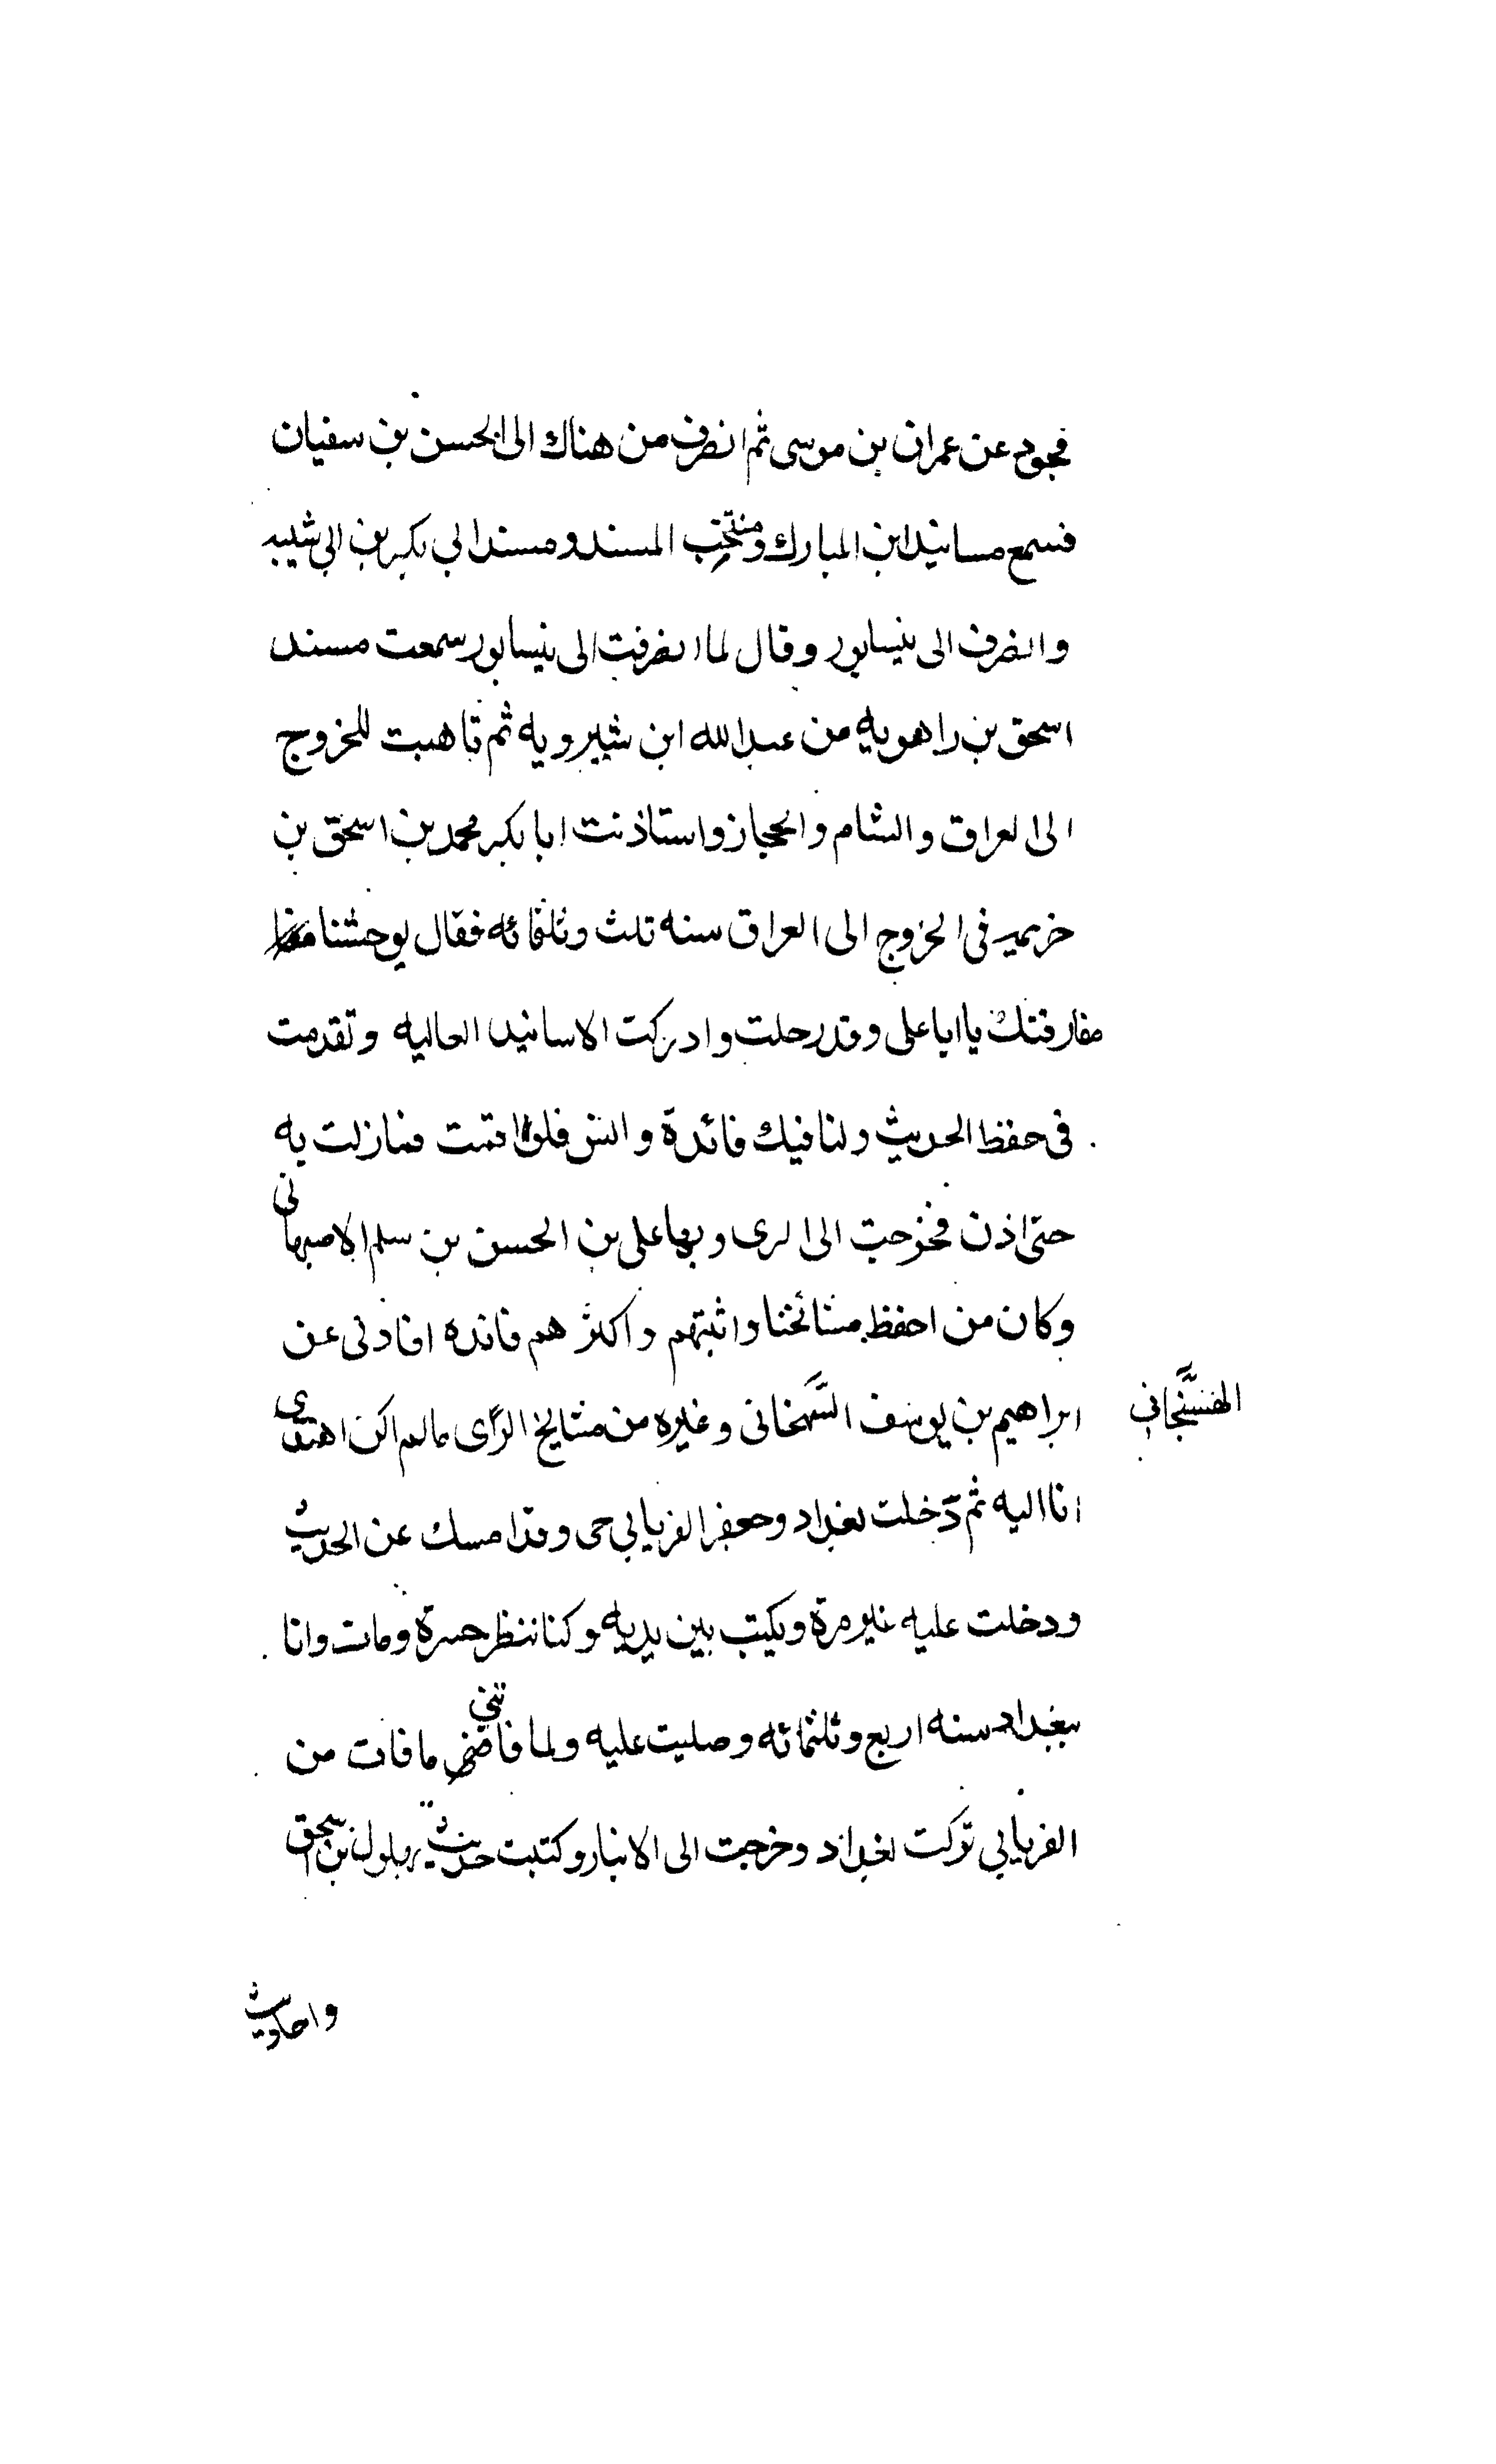 فجود عن عمران بن موسى ثم انصرف من هناك الى الحسن بن سفيان
فسمع مسانيد ابن المبارك ومنتخب المسند ومسند ابي بكر بن ابي شيبه
وانصرف الى نيسابور وقال لما انصرفت الى نيسابور سمعت مسند
اسحق بن راهويه من عبدالله ابن شيرويه ثم تاهبت للخروج
الى العراق والشام والحجاز واستاذنت ابا بكر محمد بن اسحق بن
خزيمه في الخروج الى العراق سنه ثلث وثلثمائه فقال يوحشنا
مفارقتك يا ابا على وقد رحلت وادركت الاسانيد العاليه وتقدمت
في حفظ الحديث ولنا فيك فائدة وانس فلو اقمت فما زلت به
حتى اذن فخرجت الى الرى وبها على بن الحسن بن سلم الاصبهاني
وكان من احفظ مشائخنا واثبتهم واكثر هم فائده افادنى عن
ابراهيم بن يوسف السمخانى وغيره من مشايخ الرّى مالم اكن اهتدى
الهسنجاني
انا اليه ثم دخلت بغداد وجعفر الفريابي حى وقد امسك عن الحديث
ودخلت عليه غير مرة ويكتب بين يديه وكنا ننظر حسرة ومات وانا
ببغداد سنه اربع وثلثمائه وصليت عليه ولما فاتني ما فات من
الفريابي تركت بغداد وخرجت الى الانبار وكتبت حديث بهلول بن اسحق
واحاديث